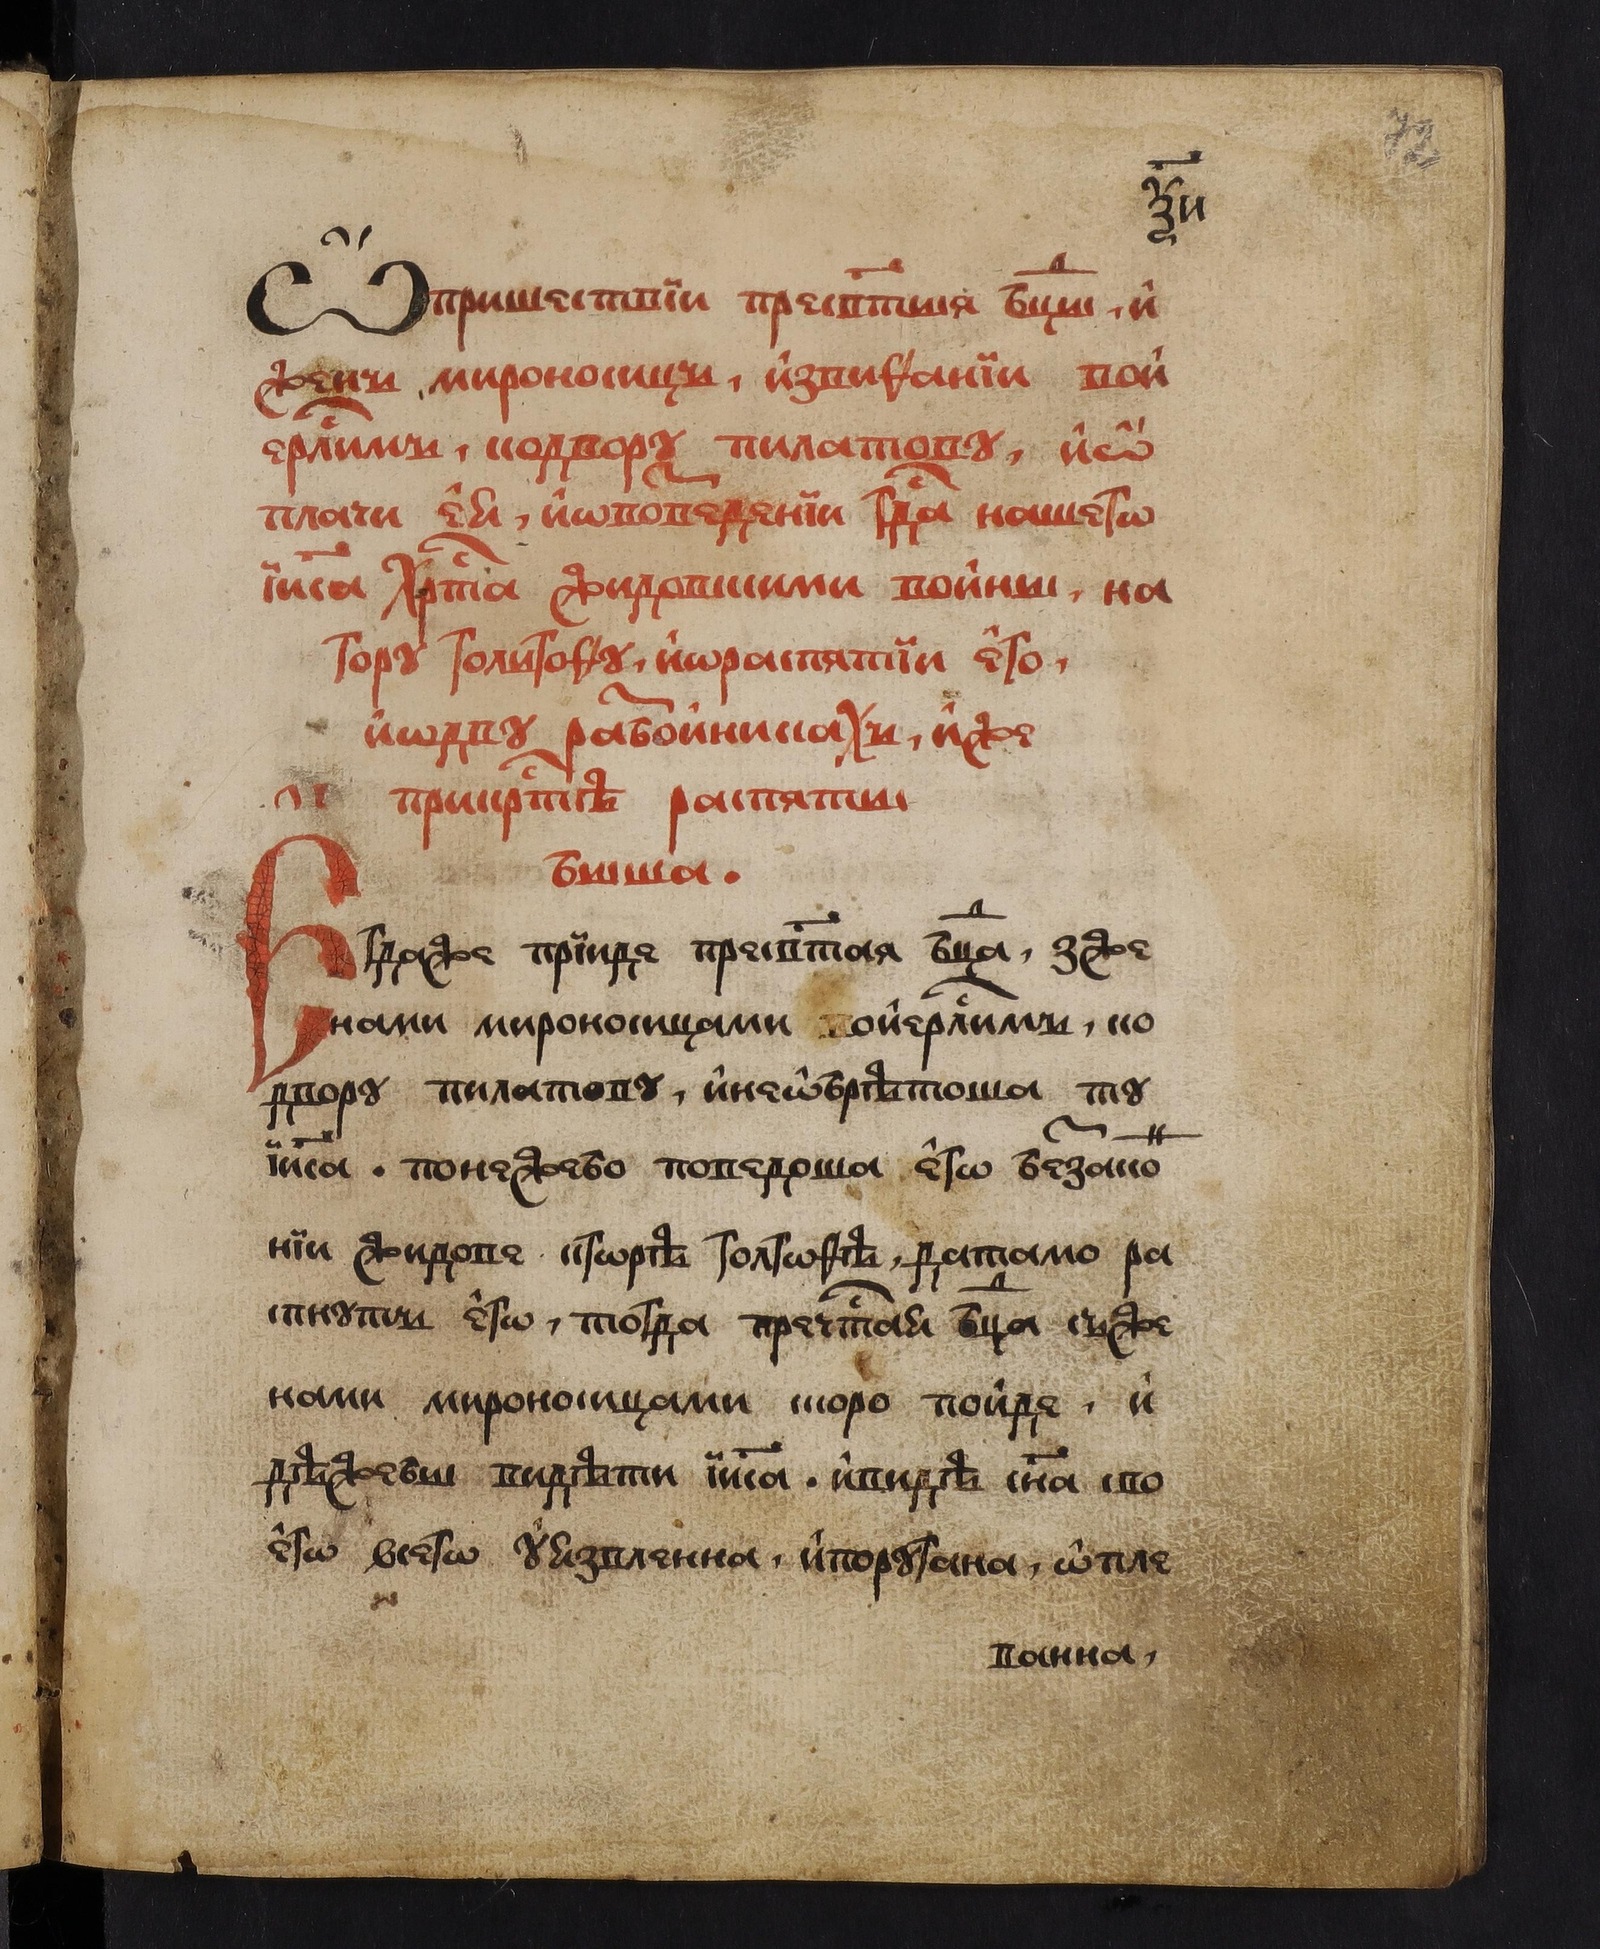 72
з҃и
Ѡ пришествїи прест҃ыя бц҃ы, и҆
жєнъ мироносицъ, и҆звиѳанїи вои҆
ерⷭ҇лимъ, кодвору пилатову, и҆ѡ҆
плачи є҆ꙗ, и҆ѡповедєнїи гдⷭ҇а нашегѡ
їи҃са хрⷭ҇та жидовскими вои҆ны, на
гору голигоѳу, и҆ѡраспятїи є҆го,
и҆ѡдву разбои҆никахъ, и҆же
прикрⷭ҇тѣ распяты
быша.
Егдаже прїиде прест҃ая бц҃а, зже
нами мироносицами вои҆ерⷭ҇лимъ, ко
двору пилатову, и҆неѡ҆брѣтоша ту
їи҃са. понежебо поведоша є҆гѡ беззако
нїи жидове кгѡрѣ голгѡѳѣ, датамо ра
спнутъ є҆гѡ, тогда пречⷭ҇таꙗ бц҃а съже
нами мироносицами скоро пои҆де, и҆
дѣжебы видѣти їи҃са. и҆видѣ сн҃а сво
є҆гѡ всегѡ у҆ꙗзвленна, и҆поругана, ѡ҆пле
ванна,